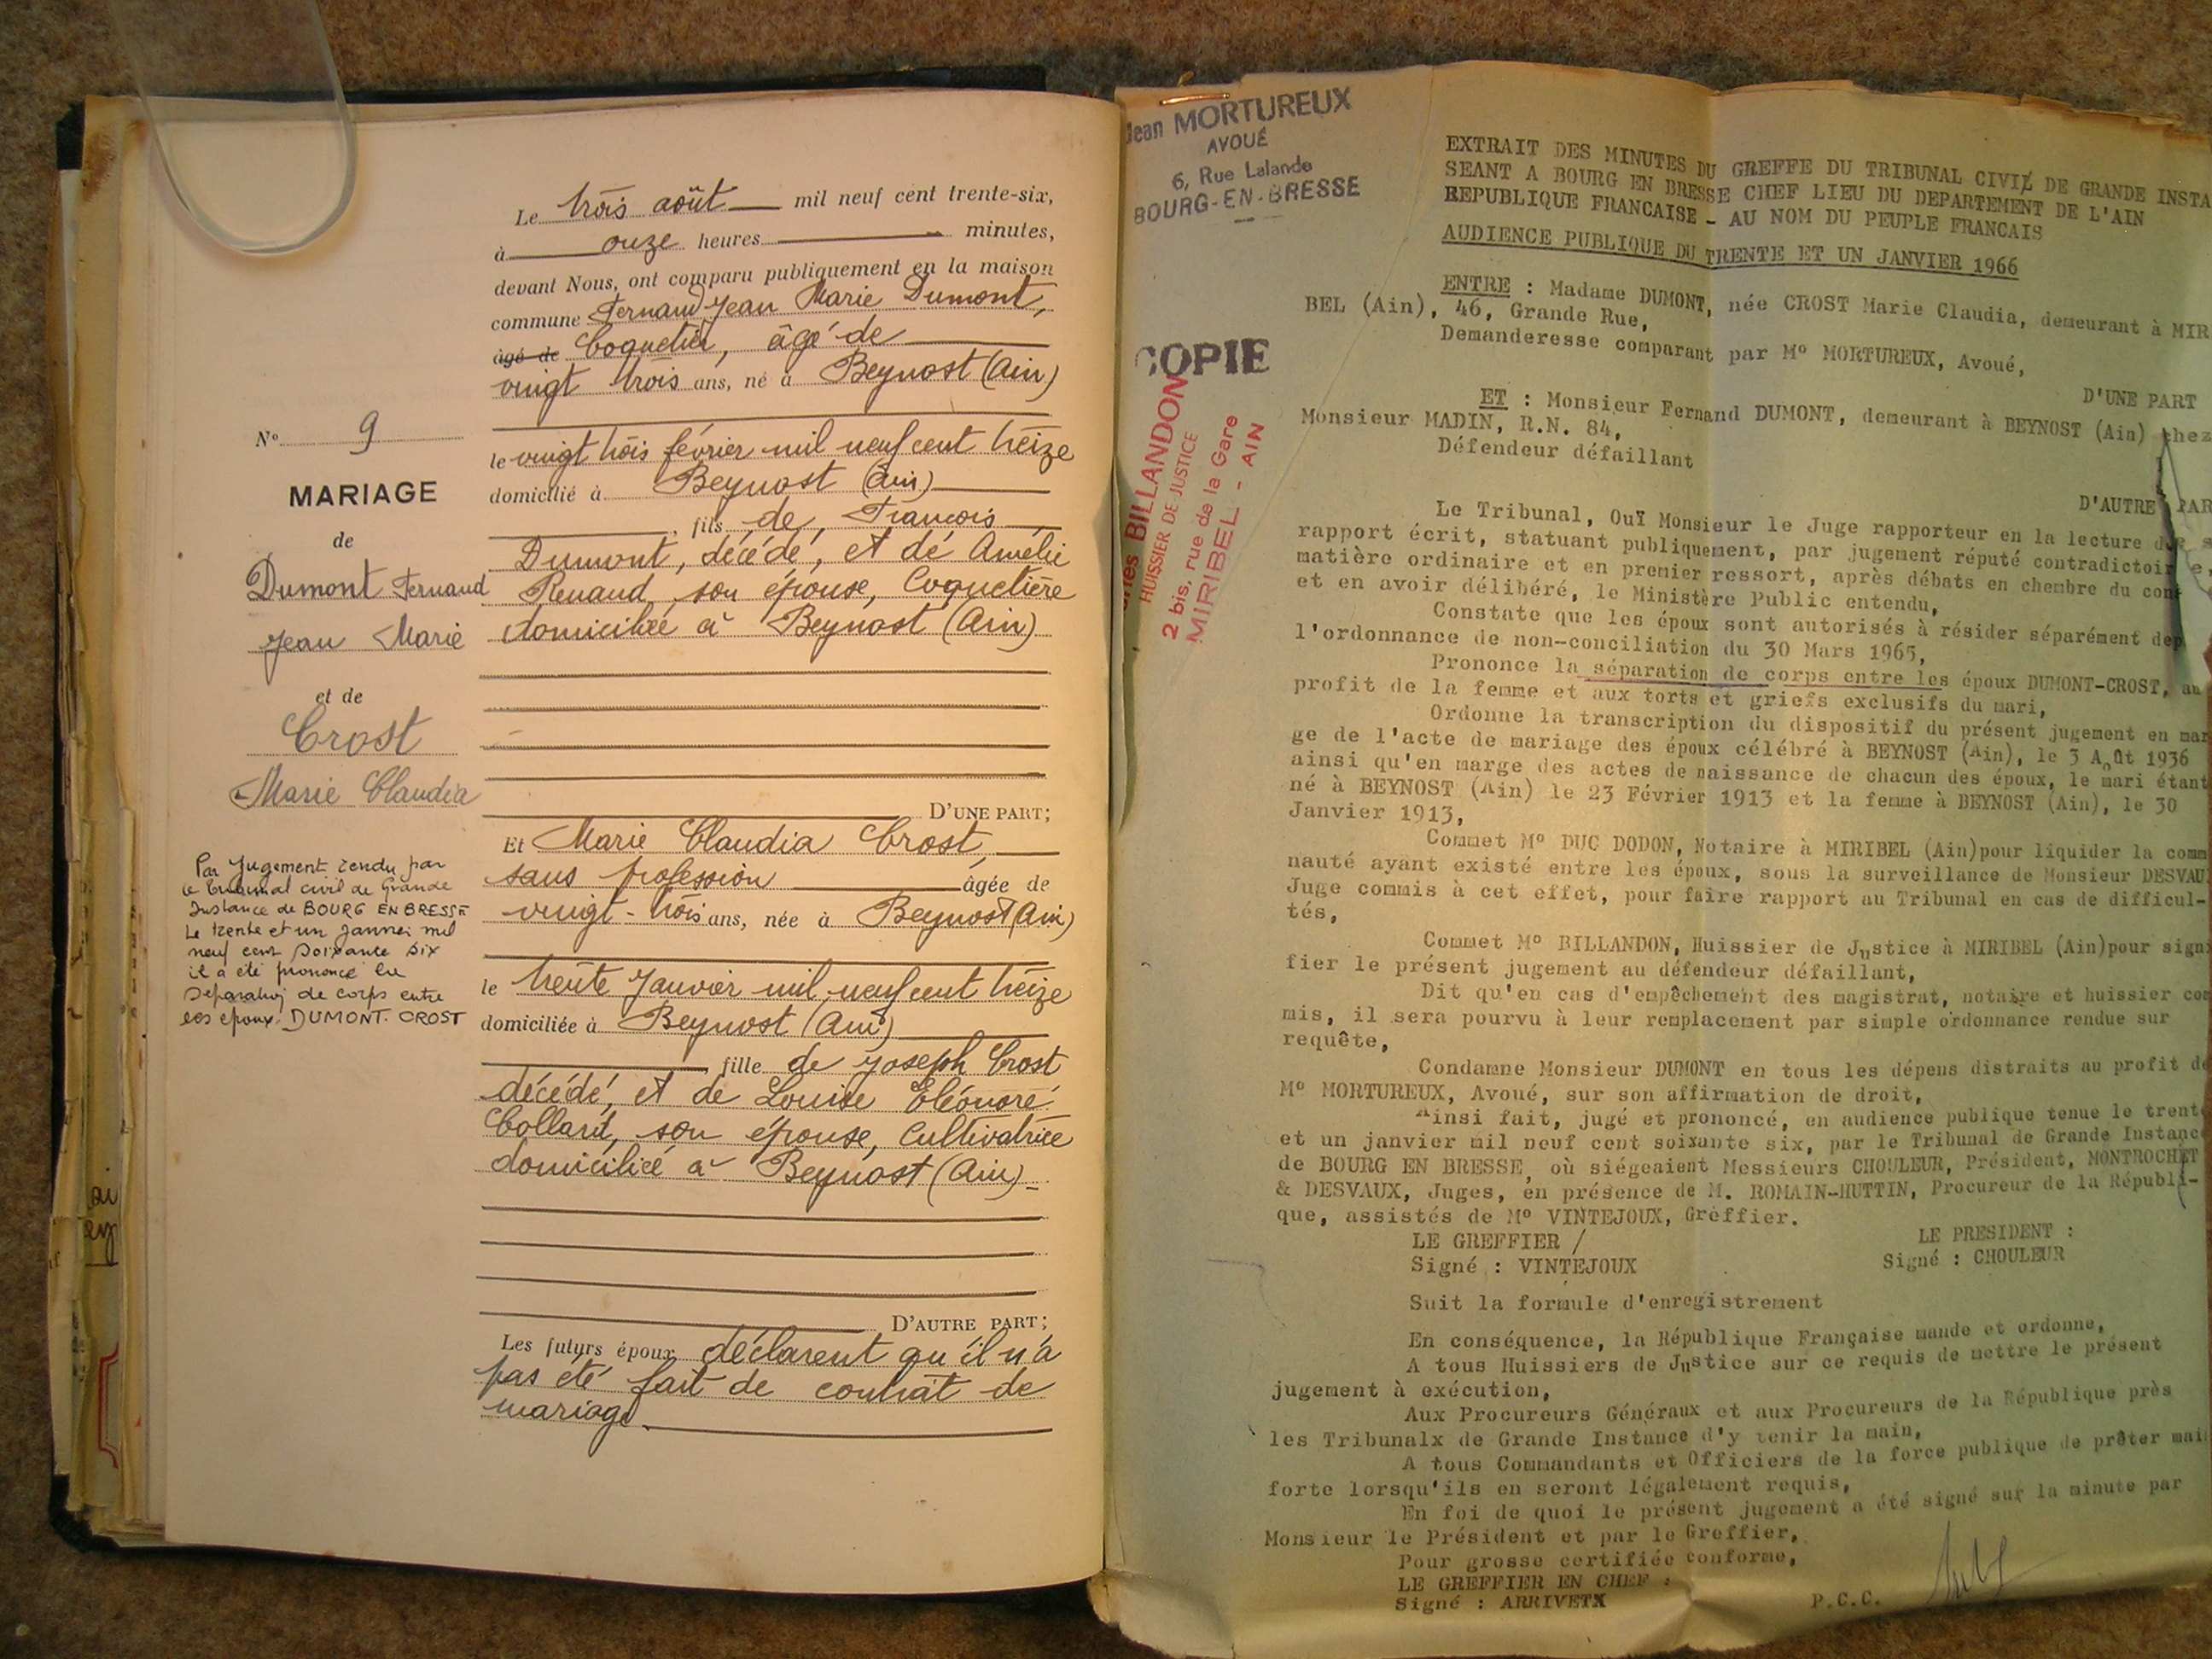 Le trois août mil neuf cent trente-six,
à onze heures minutes,
devant Nous, ont comparu publiquement en la maison
commune Fernand Jean Marie Dumont,
âgé de Coquetier, âgé de
vingt trois ans, né à Beynost (Ain)
le vingt trois février mil neuf cent treize
domicilié à Beynost (Ain)
fils de François
Dumont, décédé, et de Amélie
Renaud, son épouse, Coquetière
domiciliée à Beynost (Ain)
D'UNE PART;
Et Marie Claudia Crost,
sans profession âgée de
vingt-trois ans, née à Beynost (Ain)
le trente Janvier mil neuf cent treize
domiciliée à Beynost (Ain)
fille de Joseph Crost
décédé, et de Louise Eléonore
Collard, son épouse, Cultivatrice
domiciliée à Beynost (Ain)
D'AUTRE PART;
Les futurs époux déclarent qu'il n'a
pas été fait de contrat de
mariage
N° 9
MARIAGE
de
Dumont Fernand
Jean Marie
et de
Crost
Marie Claudia
Par Jugement rendu par
le tribunal civil de Grande
Instance de BOURG EN BRESSE
Le trente et un Janvier mil
neuf cent soixante six
il a été prononcé la
Séparation de corps entre
les époux DUMONT-CROST
Jean MORTUREUX
AVOUÉ
6, Rue Lalande
BOURG-EN-BRESSE
COPIE
BILLANDON
HUISSIER DE JUSTICE
2 bis, rue de la Gare
MIRIBEL - AIN
EXTRAIT DES MINUTES DU GREFFE DU TRIBUNAL CIVIL DE GRANDE INSTA
SEANT A BOURG EN BRESSE CHEF LIEU DU DEPARTEMENT DE L'AIN
REPUBLIQUE FRANCAISE - AU NOM DU PEUPLE FRANCAIS
AUDIENCE PUBLIQUE DU TRENTE ET UN JANVIER 1966
ENTRE : Madame DUMONT, née CROST Marie Claudia, demeurant à MIR
BEL (Ain), 46, Grande Rue,
Demanderesse comparant par M° MORTUREUX, Avoué,
D'UNE PART
ET : Monsieur Fernand DUMONT, demeurant à BEYNOST (Ain) chez
Monsieur MADIN, R.N. 84,
Défendeur défaillant
D'AUTRE PAR
Le Tribunal, Ouï Monsieur le Juge rapporteur en la lecture de s
rapport écrit, statuant publiquement, par jugement réputé contradictoire,
matière ordinaire et en premier ressort, après débats en chembre du con
et en avoir délibéré, le Ministère Public entendu,
Constate que les époux sont autorisés à résider séparément dep
l'ordonnance de non-conciliation du 30 Mars 1965,
Prononce la séparation de corps entre les époux DUMONT-CROST, au
profit de la femme et aux torts et griefs exclusifs du mari,
Ordonne la transcription du dispositif du présent jugement en mar
ge de l'acte de mariage des époux célébré à BEYNOST (Ain), le 3 Août 1936
ainsi qu'en marge des actes de naissance de chacun des époux, le mari étant
né à BEYNOST (Ain) le 23 Février 1913 et la femme à BEYNOST (Ain), le 30
Janvier 1913,
Commet M° DUC DODON, Notaire à MIRIBEL (Ain)pour liquider la comm
nauté ayant existé entre les époux, sous la surveillance de Monsieur DESVAU
Juge commis à cet effet, pour faire rapport au Tribunal en cas de difficul-
tés,
Commet M° BILLANDON, Huissier de Justice à MIRIBEL (Ain)pour signi
fier le présent jugement au défendeur défaillant,
Dit qu'en cas d'empêchement des magistrat, notaire et huissier com
mis, il sera pourvu à leur remplacement par simple ordonnance rendue sur
requête,
Condamne Monsieur DUMONT en tous les dépens distraits au profit de
M° MORTUREUX, Avoué, sur son affirmation de droit,
Ainsi fait, jugé et prononcé, en audience publique tenue le trente
et un janvier mil neuf cent soixante six, par le Tribunal de Grande Instance
de BOURG EN BRESSE, où siégeaient Messieurs CHOULEUR, Président, MONTROCHET
& DESVAUX, Juges, en présence de M. ROMAIN-HUTTIN, Procureur de la Républi-
que, assistés de M° VINTEJOUX, Greffier.
LE GREFFIER / LE PRESIDENT :
Signé : VINTEJOUX Signé : CHOULEUR
Suit la formule d'enregistrement
En conséquence, la République Française mande et ordonne,
A tous Huissiers de Justice sur ce requis de mettre le présent
jugement à exécution,
Aux Procureurs Généraux et aux Procureurs de la République près
les Tribunalx de Grande Instance d'y tenir la main,
A tous Commandants et Officiers de la force publique de prêter main
forte lorsqu'ils en seront légalement requis,
En foi de quoi le présent jugement a été signé sur la minute par
Monsieur le Président et par le Greffier,
Pour grosse certifiée conforme,
LE GREFFIER EN CHEF :
Signé : ARRIVETX P.C.C.